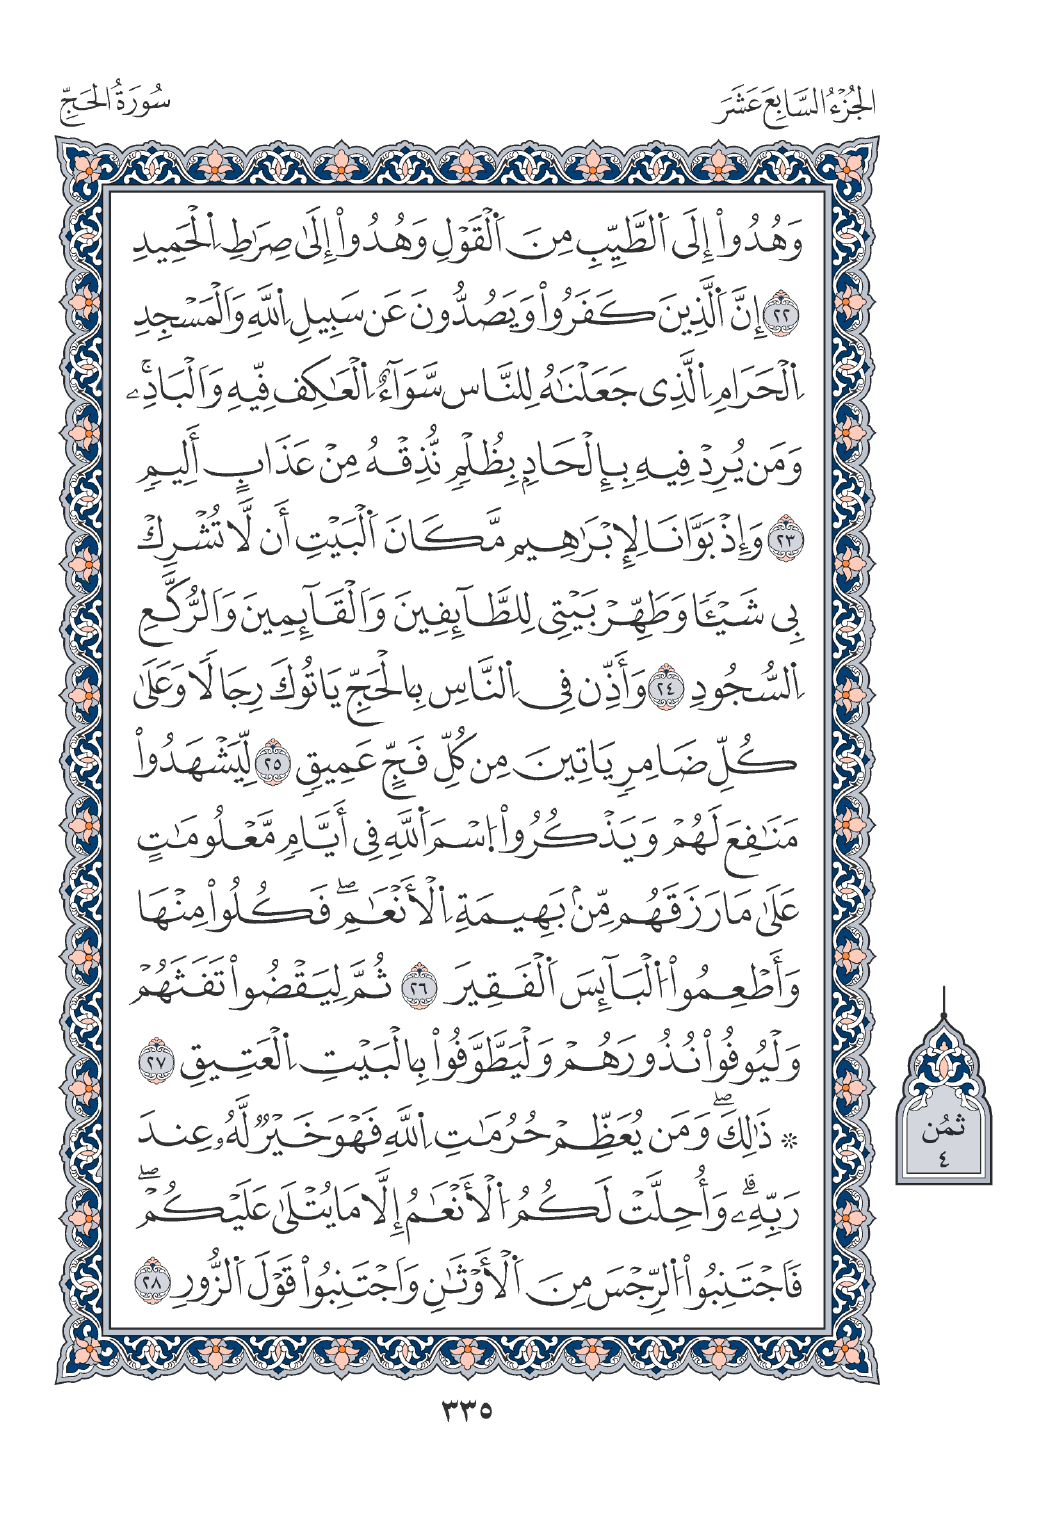 الجُزْءُ السَّابِعَ عَشَرَ
سُورَةُ الحَجِّ
وَهُدُوٓاْ إِلَى اَ۬لطَّيِّبِ مِنَ اَ۬لْقَوْلِ وَهُدُوٓاْ إِلَىٰ صِرَٰطِ اِ۬لْحَمِيدِ
٢٢ إِنَّ اَ۬لَّذِينَ كَفَرُواْ وَيَصُدُّونَ عَن سَبِيلِ اِ۬للَّهِ وَالْمَسْجِدِ
اِ۬لْحَرَامِ اِ۬لَّذِى جَعَلْنَٰهُ لِلنَّاسِ سَوَآءٌ اِ۬لْعَٰكِف فِّيهِ وَالْبَادِۦ
وَمَن يُرِدْ فِيهِ بِإِلْحَادِۢ بِظُلْمٖ نُّذِقْهُ مِنْ عَذَابٍ أَلِيمٖ
٢٣ وَإِذْ بَوَّانَا لِإِبْرَٰهِيم مَّكَانَ اَ۬لْبَيْتِ أَن لَّا تُشْرِكْ
بِى شَيْـٔٗا وَطَهِّرْ بَيْتِى لِلطَّآئِفِينَ وَالْقَآئِمِينَ وَالرُّكَّعِ
اِ۬لسُّجُودِ ٢٤ وَأَذِّن فِى اِ۬لنَّاسِ بِالْحَجِّ يَاتُوكَ رِجَالٗا وَعَلَىٰ
كُلِّ ضَامِرٖ يَاتِينَ مِن كُلِّ فَجٍّ عَمِيقٖ ٢٥ لِّيَشْهَدُواْ
مَنَٰفِعَ لَهُمْ وَيَذْكُرُواْ اُ۪سْمَ اَ۬للَّهِ فِى أَيَّامٖ مَّعْلُومَٰتٍ
عَلَىٰ مَا رَزَقَهُم مِّنۢ بَهِيمَةِ اِ۬لْأَنْعَٰمِۖ فَكُلُواْ مِنْهَا
وَأَطْعِمُواْ اُ۬لْبَآئِسَ اَ۬لْفَقِيرَ ٢٦ ثُمَّ لِيَقْضُواْ تَفَثَهُمْ
وَلْيُوفُواْ نُذُورَهُمْ وَلْيَطَّوَّفُواْ بِالْبَيْتِ اِ۬لْعَتِيقِ ٢٧
۞ ذَٰلِكَۖ وَمَن يُعَظِّمْ حُرُمَٰتِ اِ۬للَّهِ فَهْوَ خَيْرٞ لَّهُۥ عِندَ
رَبِّهِۦۗ وَأُحِلَّتْ لَكُمُ اُ۬لْأَنْعَٰمُ إِلَّا مَا يُتْلَىٰ عَلَيْكُمْۖ
فَاجْتَنِبُواْ اُ۬لرِّجْسَ مِنَ اَ۬لْأَوْثَٰنِ وَاجْتَنِبُواْ قَوْلَ اَ۬لزُّورِ ٢٨
ثُمُن
٤
٣٣٥